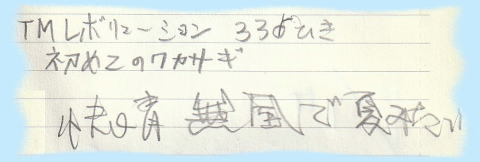 TMレボリューション 33ひき
初めてのワカサギ
快晴 無風で夏みたい